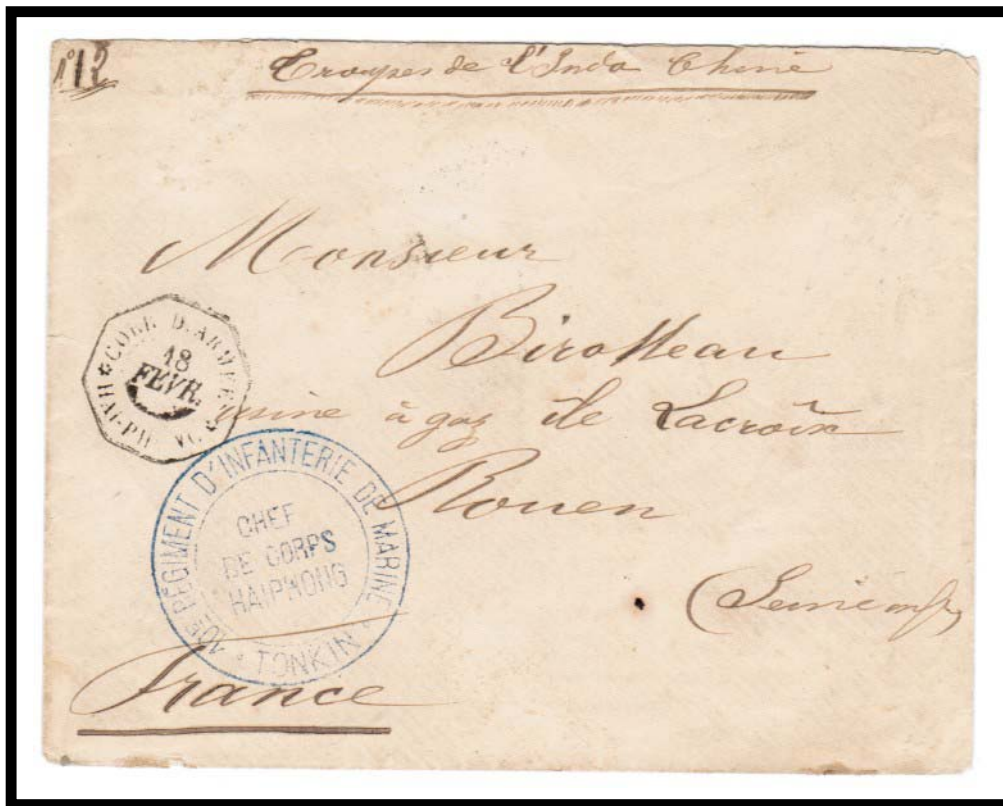 n° 12
Troupes de l'Indo Chine
Monsieur
Birotteau
usine à gaz île Lacroix
Rouen
(Seine infre)
France
CORR. D. ARMEES
18
FEVR.
HAI-PHONG
10E RÉGIMENT D'INFANTERIE DE MARINE
CHEF
DE CORPS
HAIPHONG
TONKIN